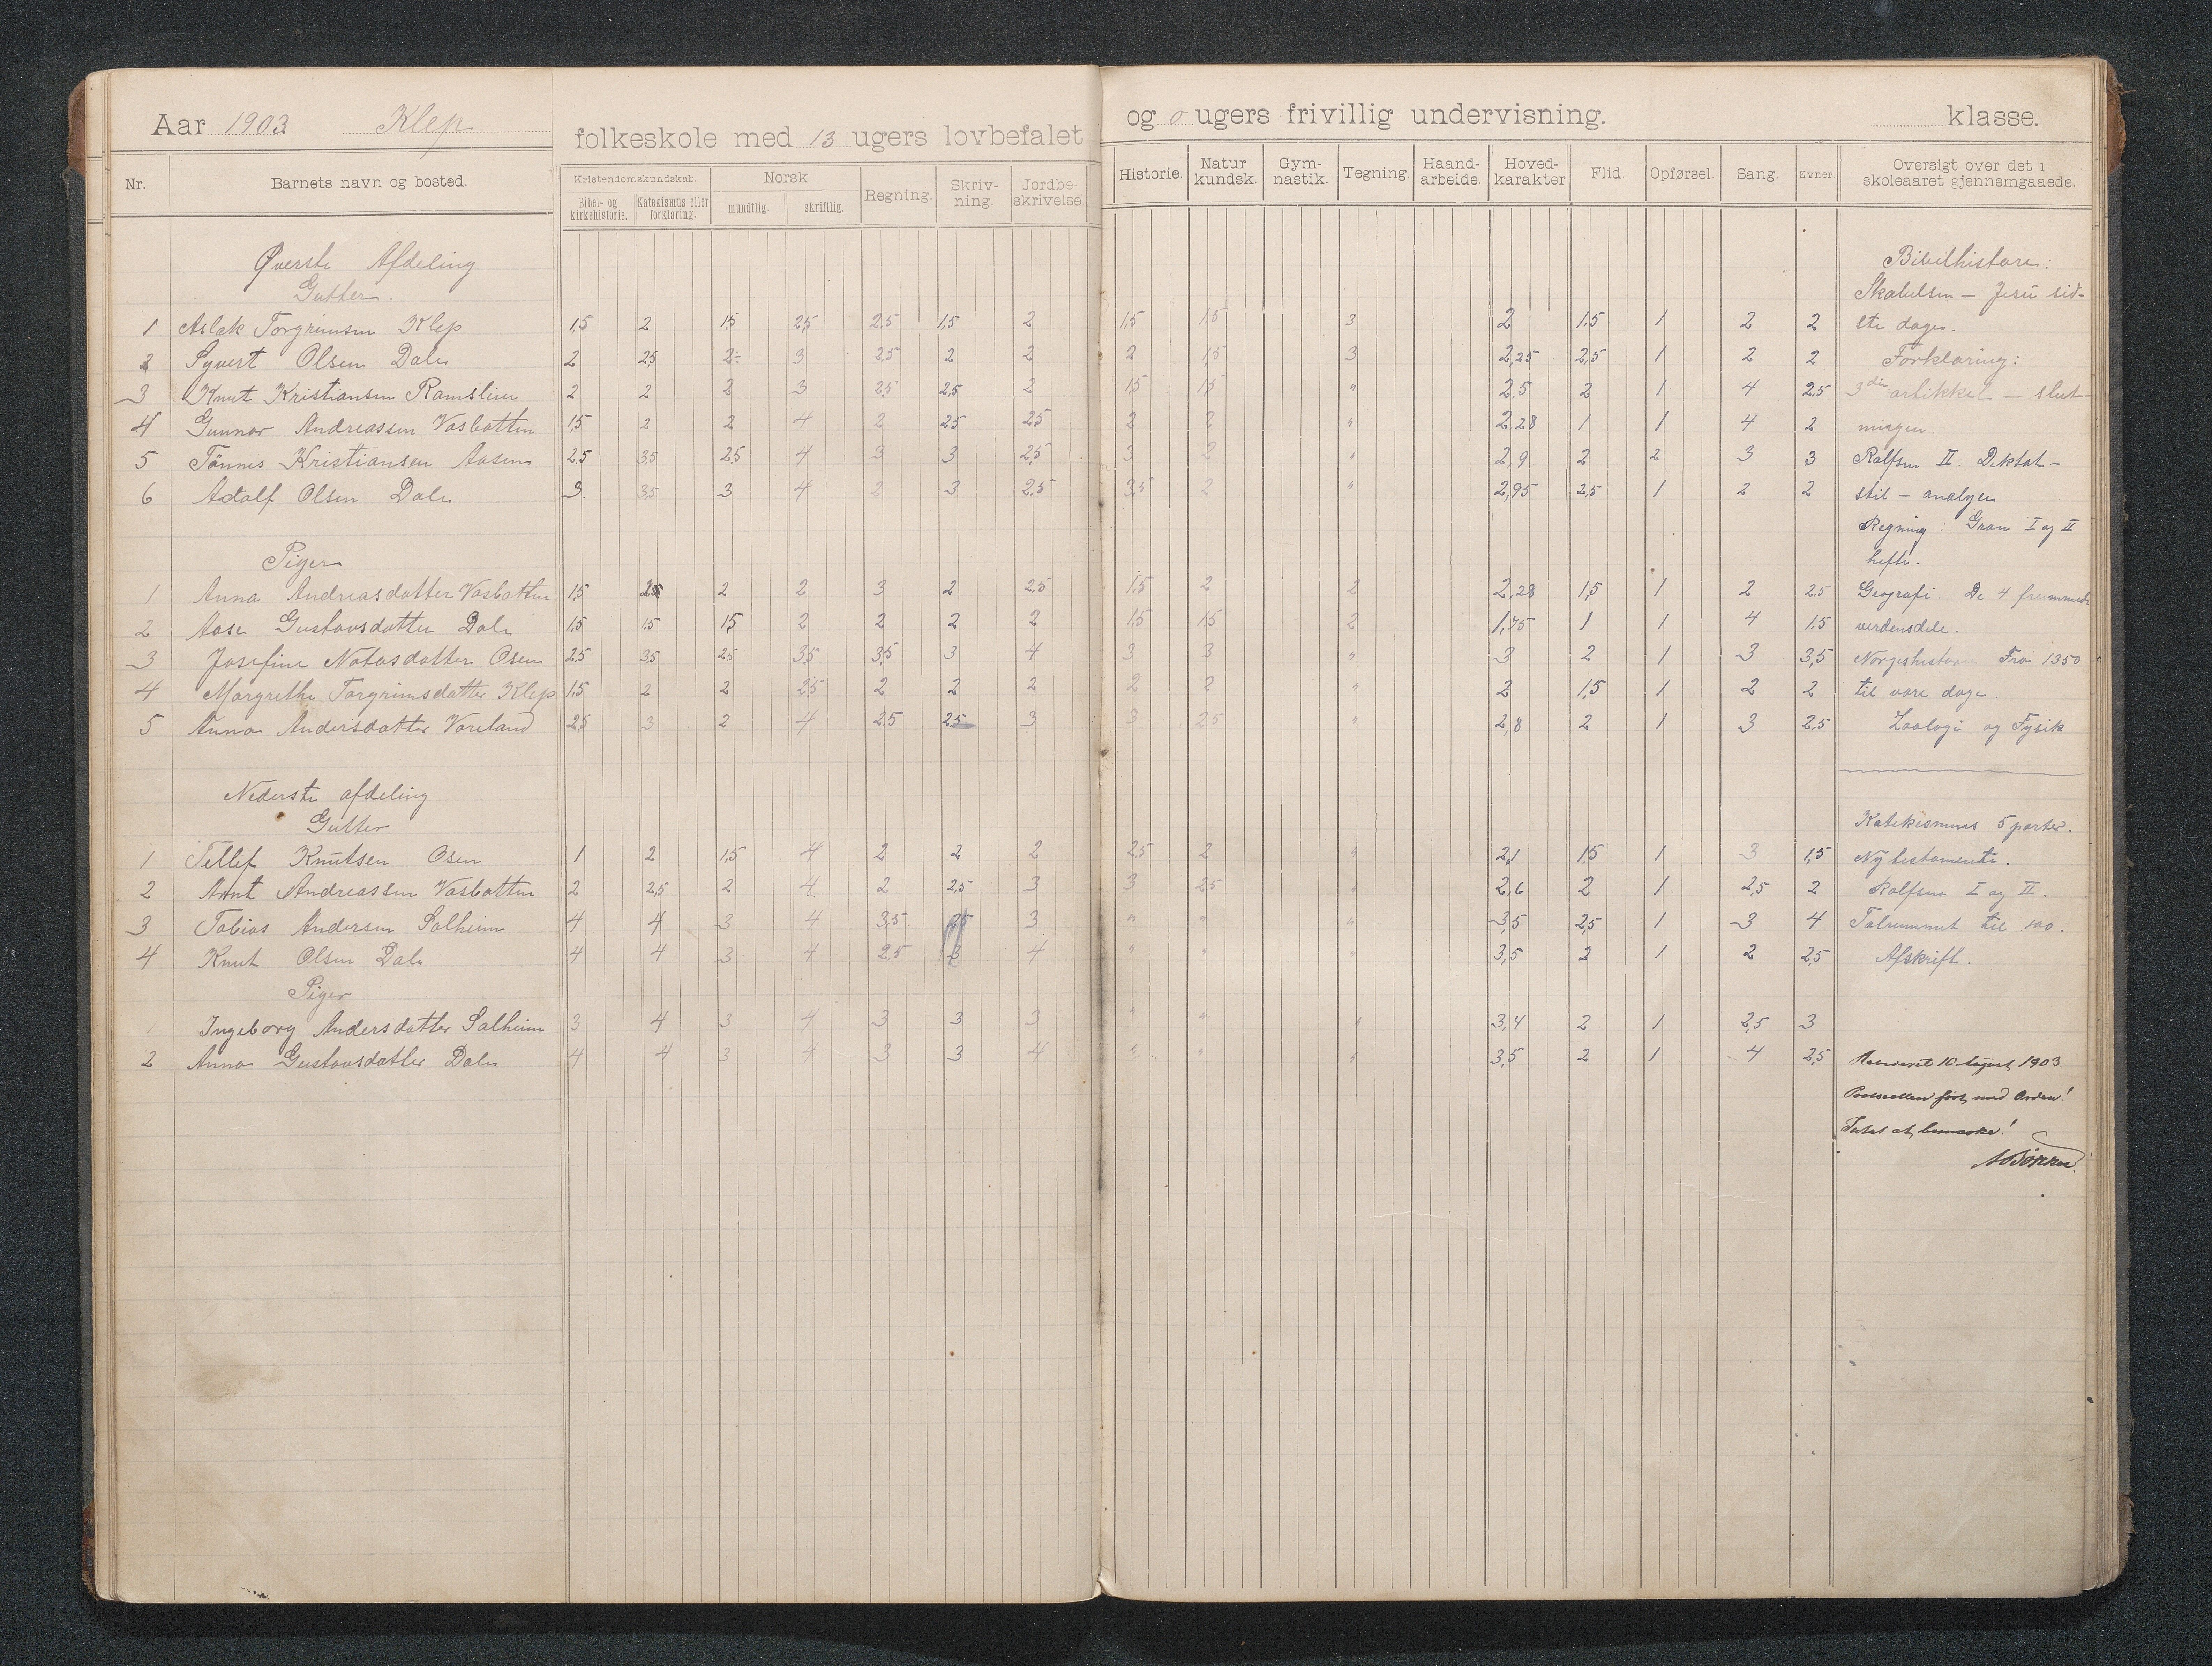 Aar 1903 Klep folkeskole med 13 ugers lovbefalet og 0 ugers frivillig undervisning. klasse.
Nr. Barnets navn og bosted. Kristendomskundskab. Norsk Regning. Skriv- Jordbe- Historie. Natur Gym- Tegning Haand- Hoved- Flid. Opførsel. Sang. Evner Oversigt over det i
Bibel- og Katekismus eller mundtlig. skriftlig. ning. skrivelse. kundsk. nastik. arbeide. karakter skoleaaret gjennemgaaede.
kirkehistorie. forklaring.
Øverste Afdeling Bibelhistorie:
Gutter. Skabelsen – Jesu sid-
1 Aslak Torgrimsen Klep 1,5 2 1,5 2,5 2,5 1,5 2 1,5 1,5 3 2 1,5 1 2 2 ste dage.
2 Syvert Olsen Dale 2 2,5 2÷ 3 2,5 2 2 2 1,5 3 2,25 2,5 1 2 2 Forklaring:
3 Knut Kristiansen Ramslien 2 2 2 3 2,5 2,5 2 1,5 1,5 " 2,5 2 1 4 2,5 3die artikkel – slut-
4 Gunnar Andreassen Vasbotten 1,5 2 2 4 2 2,5 2,5 2 2 " 2,28 1 1 4 2 ningen.
5 Tönnes Kristiansen Aasen 2,5 3,5 2,5 4 3 3 2,5 3 2 " 2,9 2 2 3 3 Rolfsen II. Diktat –
6 Adolf Olsen Dale 3 3,5 3 4 2 3 2,5 3,5 2 " 2,95 2,5 1 2 2 stil – analyse
Regning: Gran I og II
Piger hefte.
1 Anna Andreasdatter Vasbotten 1,5 2,5 2 2 3 2 2,5 1,5 2 2 2,28 1,5 1 2 2,5 Geografi. De 4 fremmede
2 Aase Gustavsdatter Dale 1,5 1,5 1,5 2 2 2 2 1,5 1,5 2 1,75 1 1 4 1,5 verdensdele.
3 Josefine Notosdatter Osen 2,5 3,5 2,5 3,5 3,5 3 4 3 3 " 3 2 1 3 3,5 Norgeshistorie Fra 1350
4 Margrethe Torgrimsdatter Klep 1,5 2 2 2,5 2 2 2 2 2 " 2 1,5 1 2 2 til vore dage.
5 Anna Andersdatter Voreland 2,5 3 2 4 2,5 2,5 3 3 2,5 " 2,8 2 1 3 2,5 Zoologi og Fysik
Nederste afdeling
Gutter Katekismus 5 parter.
1 Tellef Knutsen Osen 1 2 1,5 4 2 2 2 2,5 2 " 2,1 1,5 1 3 1,5 Nytestamente.
2 Arnt Andreassen Vasbotten 2 2,5 2 4 2 2,5 3 3 2,5 " 2,6 2 1 2,5 2 Rolfsen I og II.
3 Tobias Andersen Solheim 4 4 3 4 3,5 2,5 3 " " " 3,5 2,5 1 3 4 Talrummet til 100.
4 Knut Olsen Dale 4 4 3 4 2,5 3 4 " " " 3,5 2 1 2 2,5 Afskrift.
Piger
1 Ingeborg Andersdatter Solheim 3 4 3 4 3 3 3 " " " 3,4 2 1 2,5 3
2 Anna Gustavsdatter Dale 4 4 3 4 3 3 4 " " " 3,5 2 1 4 2,5 10 August 1903.
ført med Orden!
Intet at bemærke!